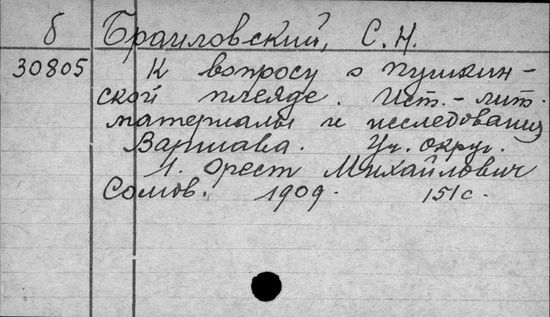 б Браиловский, С. Н.
30805 К вопросу о пушкин-
ской плеяде. Ист.-лит.
материалы и исследования
Варшава. Уч. округ.
1. Орест Михайлович
Сомов. 1909. 151с.